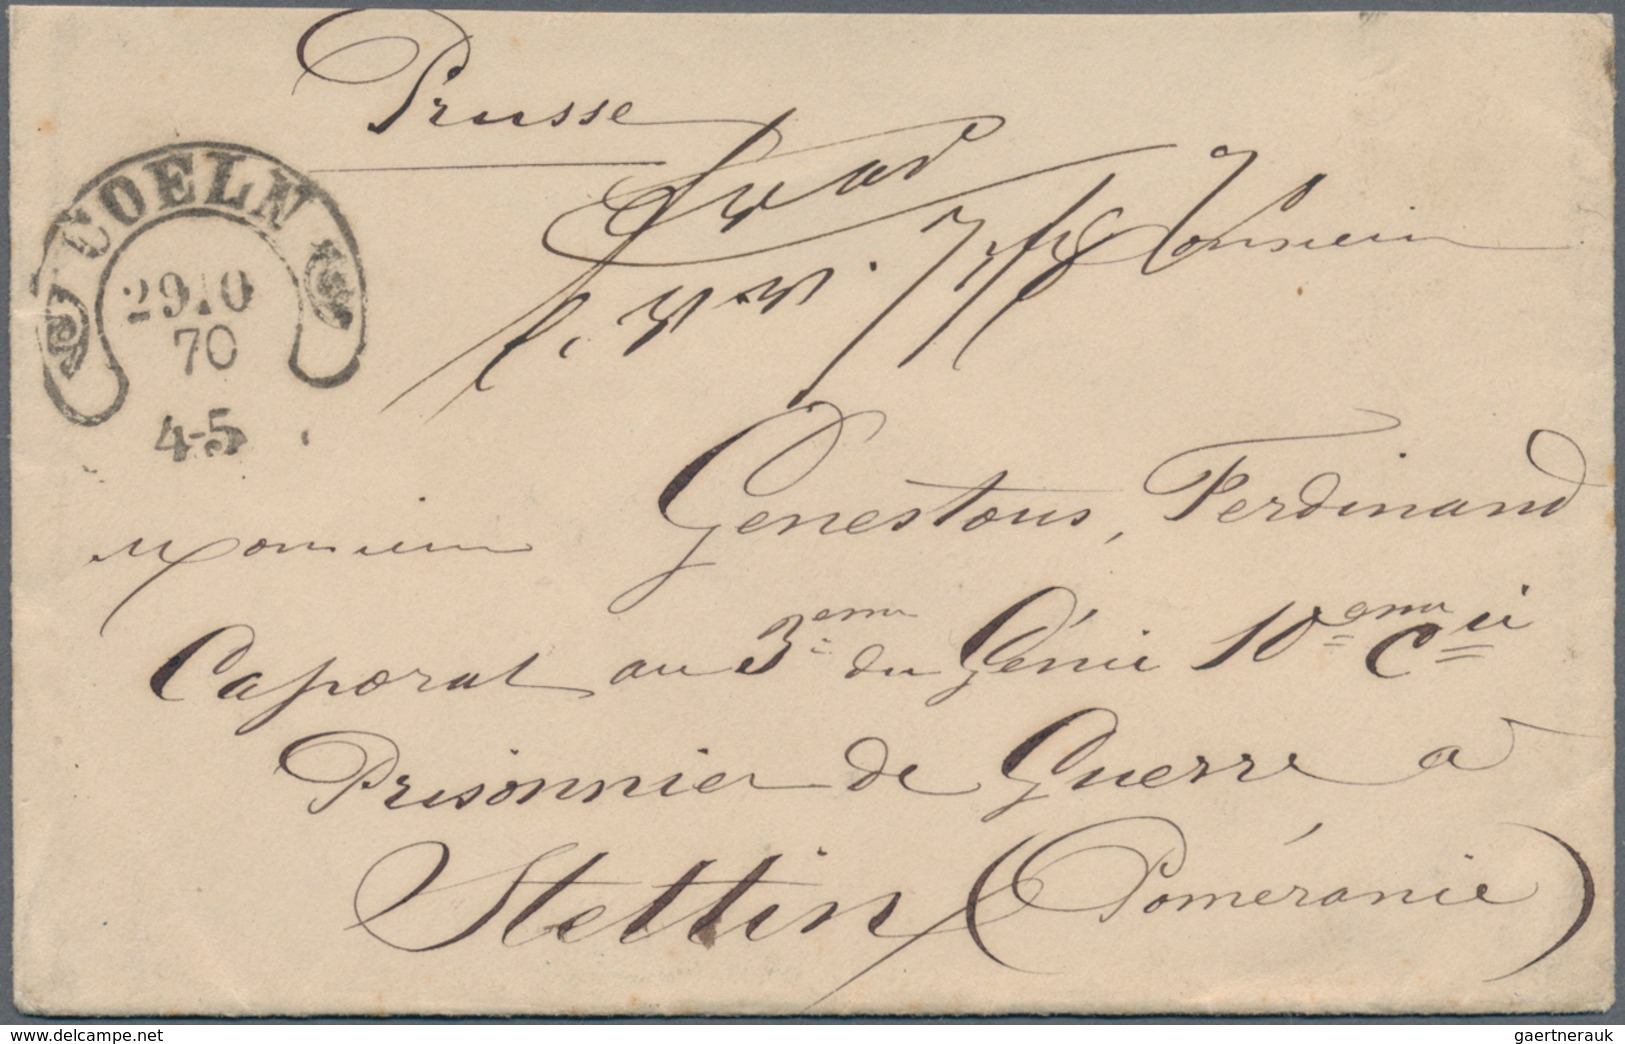 Prusse
COELN
29.10
70
4-5
Monsieur
Monsieur Genestous, Ferdinand
Caporal au 3eme du Génie 10eme Cie
Prisonnier de Guerre a
Stettin (Poméranie)
www.delcampe.net
gaertnerauk